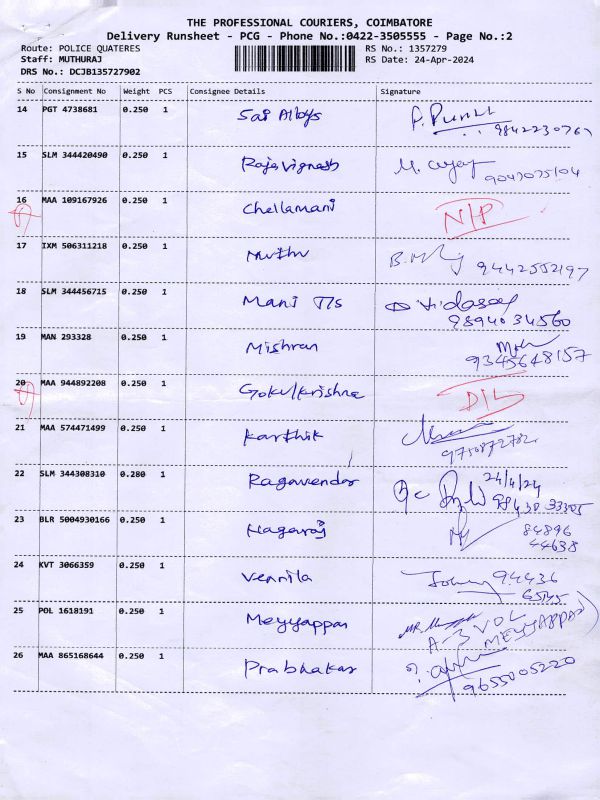 THE PROFESSIONAL COURIERS, COIMBATORE
Delivery Runsheet - PCG - Phone No.:0422-3505555 - Page No.:2
Route: POLICE QUATERES RS No.: 1357279
Staff: MUTHURAJ RS Date: 24-Apr-2024
DRS No.: DCJB135727902
S No Consignment No Weight PCS Consignee Details Signature
14 PGT 4738681 0.250 1 Sai Alloys
15 SLM 344420490 0.250 1 Raja Vignesh
16 MAA 109167926 0.250 1 Chellamani N/P
17 IXM 506311218 0.250 1 Muthu
9442552197
18 SLM 344456715 0.250 1 Mani T/s
9894034560
19 MAN 293328 0.250 1 Mishran
9345648157
20 MAA 944892208 0.250 1 Gokul krishna D/L
21 MAA 574471499 0.250 1 Karthik
22 SLM 344308310 0.280 1 Ragavender 24/4/24
98430 33305
23 BLR 5004930166 0.250 1 Nagaraj 84896
44638
24 KVT 3066359 0.250 1 Vennila 94436
25 POL 1618191 0.250 1 Meyyappan
A-3 VOC
MEYYAPPAN
26 MAA 865168644 0.250 1 Prabhakar
9655005220